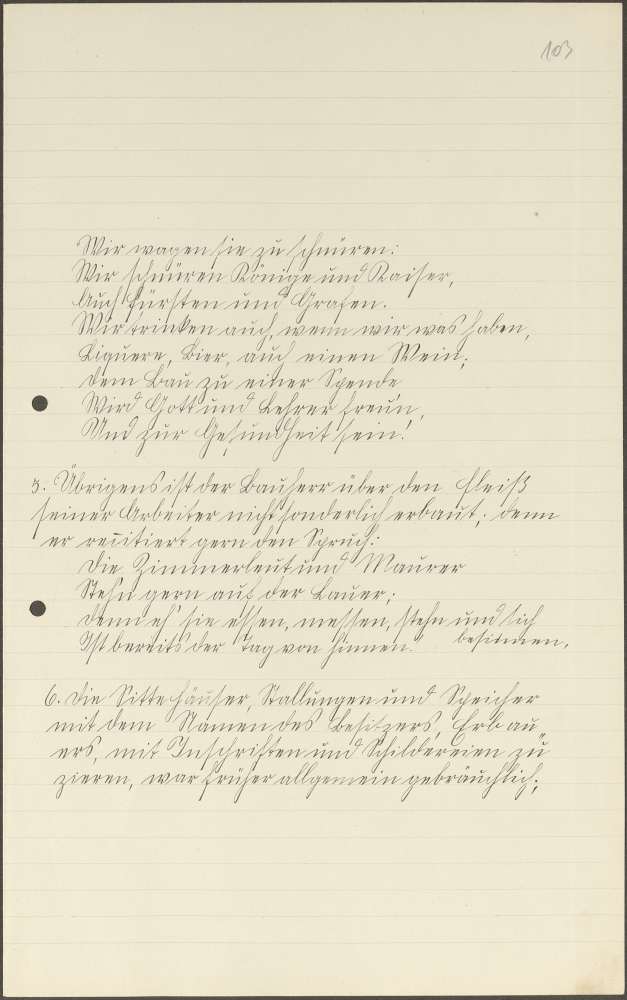 103
Wir wagen sie zu schnüren:
Wir schnüren Könige und Kaiser,
Auch Fürsten und Grafen.
Wir trinken auch, wenn wir was haben,
Liquere, Bier, auch einen Wein;
Dem Bau zu einer Spende
Wird Gott und Lehrer freun,
Und zur Gesundheit sein!
5. Übrigens ist der Bauherr über den Fleiß
seiner Arbeiter nicht sonderlich erbaut; denn
er rezitiert gern den Spruch:
Die Zimmerleut und Maurer
Stehn gern auf der Lauer;
Denn eh' sie essen, messen, stehn und sich
besinnen,
Ist bereits der Tag von hinnen."
6. Die Sitte Häuser, Stallungen und Speicher
mit dem Namen des Besitzers, Erbau„
ers, mit Inschriften und Schildereien zu
zieren, war früher allgemein gebräuchlich;